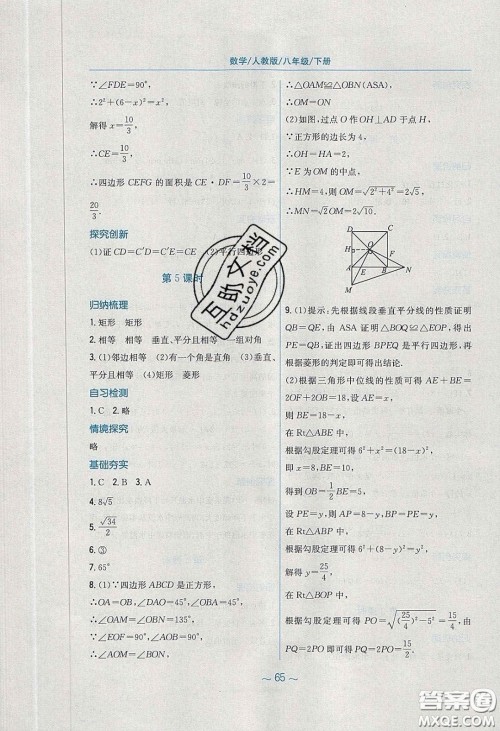 数学/人教版/八年级/下册
∵∠FDE=90°,
∴2²+(6-x)²=x²,
解得x=10/3,
∴CE=10/3,
∴四边形CEFG的面积是CE·DF=10/3×2=
20/3.
探究创新
(1)证CD=C′D=C′E=CE (2)平行四边形
第5课时
归纳梳理
1. 矩形 矩形
2. 相等 相等 垂直、平分且相等 一组对角
3. (1)邻边相等 (2)有一个角是直角 (3)垂直、
平分且相等 (4)矩形 菱形
自习检测
1. C 2. 略
情境探究
略
基础夯实
1. C 2. B 3. A
4. 8√5
5. √34/2
6. ③
7. 65°
8. (1)∵四边形ABCD是正方形,
∴OA=OB,∠DAO=45°,∠OBA=45°,
∴∠OAM=∠OBN=135°,
∵∠EOF=90°,∠AOB=90°,
∴∠AOM=∠BON,
∴△OAM≌△OBN (ASA),
∴OM=ON
(2)如图,过点O作OH⊥AD于点H,
∵正方形的边长为4,
∴OH=HA=2,
∵E为OM的中点,
∴HM=4,则OM=√(2²+4²)=2√5,
∴MN=√2OM=2√10.
D C
M
H O F
A E B N
9. (1)提示:先根据线段垂直平分线的性质证明
QB=QE,由ASA证明△BOQ≌△EOP,得出
PE=QB,证出四边形BPEQ是平行四边形,再
根据菱形的判定即可得出结论.
(2)根据三角形中位线的性质可得AE+BE=
2OF+2OB=18,设AE=x,
则BE=18-x,
在Rt△ABE中,
根据勾股定理可得6²+x²=(18-x)²,
即x=8,BE=10,
得到OB=1/2BE=5,
设PE=y,则AP=8-y,BP=y,
在Rt△ABP中,
根据勾股定理可得6²+(8-y)²=y²,
解得y=25/4,
在Rt△BOP中,
根据勾股定理可得PO=√((25/4)²-5²)=15/4,由
PQ=2PO即可得PQ=2PO=15/2.
百助文档
baizhuwendang
~65~
答案圈
MXQE.COM